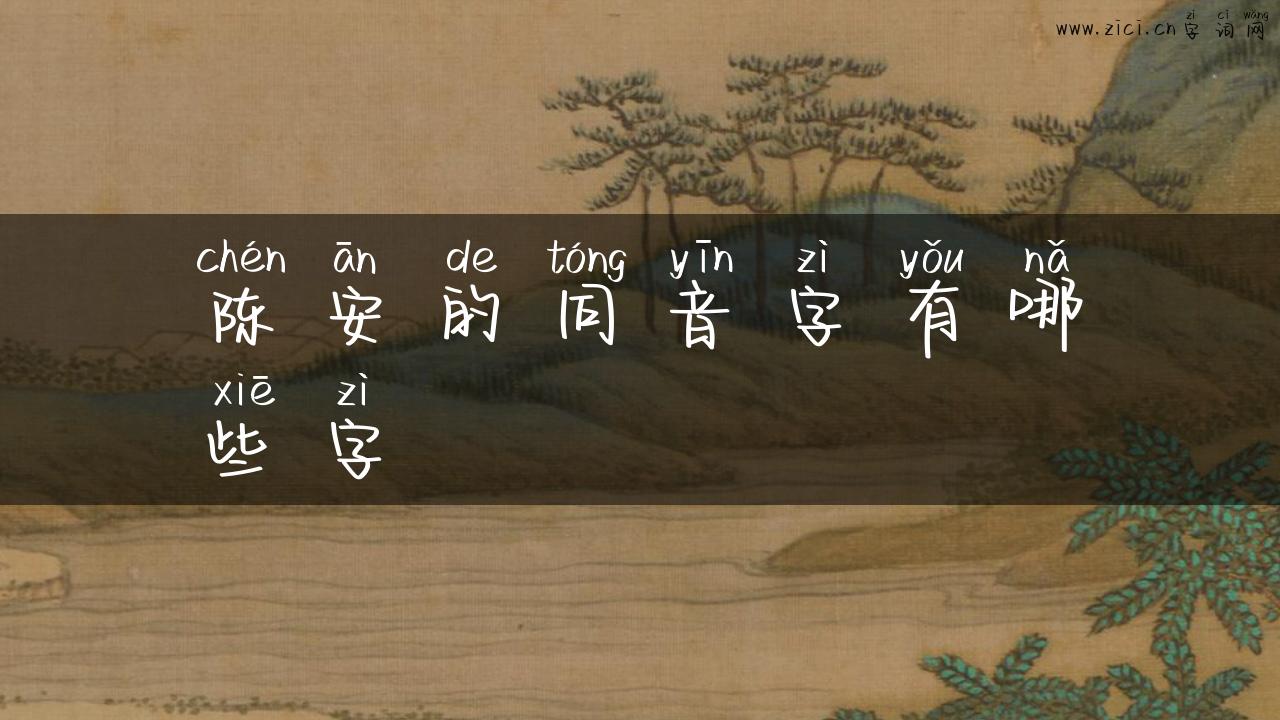 zì cí wǎng
www.zici.cn 字 词 网
chén ān de tóng yīn zì yǒu nǎ
陈 安 的 同 音 字 有 哪
xiē zì
些 字